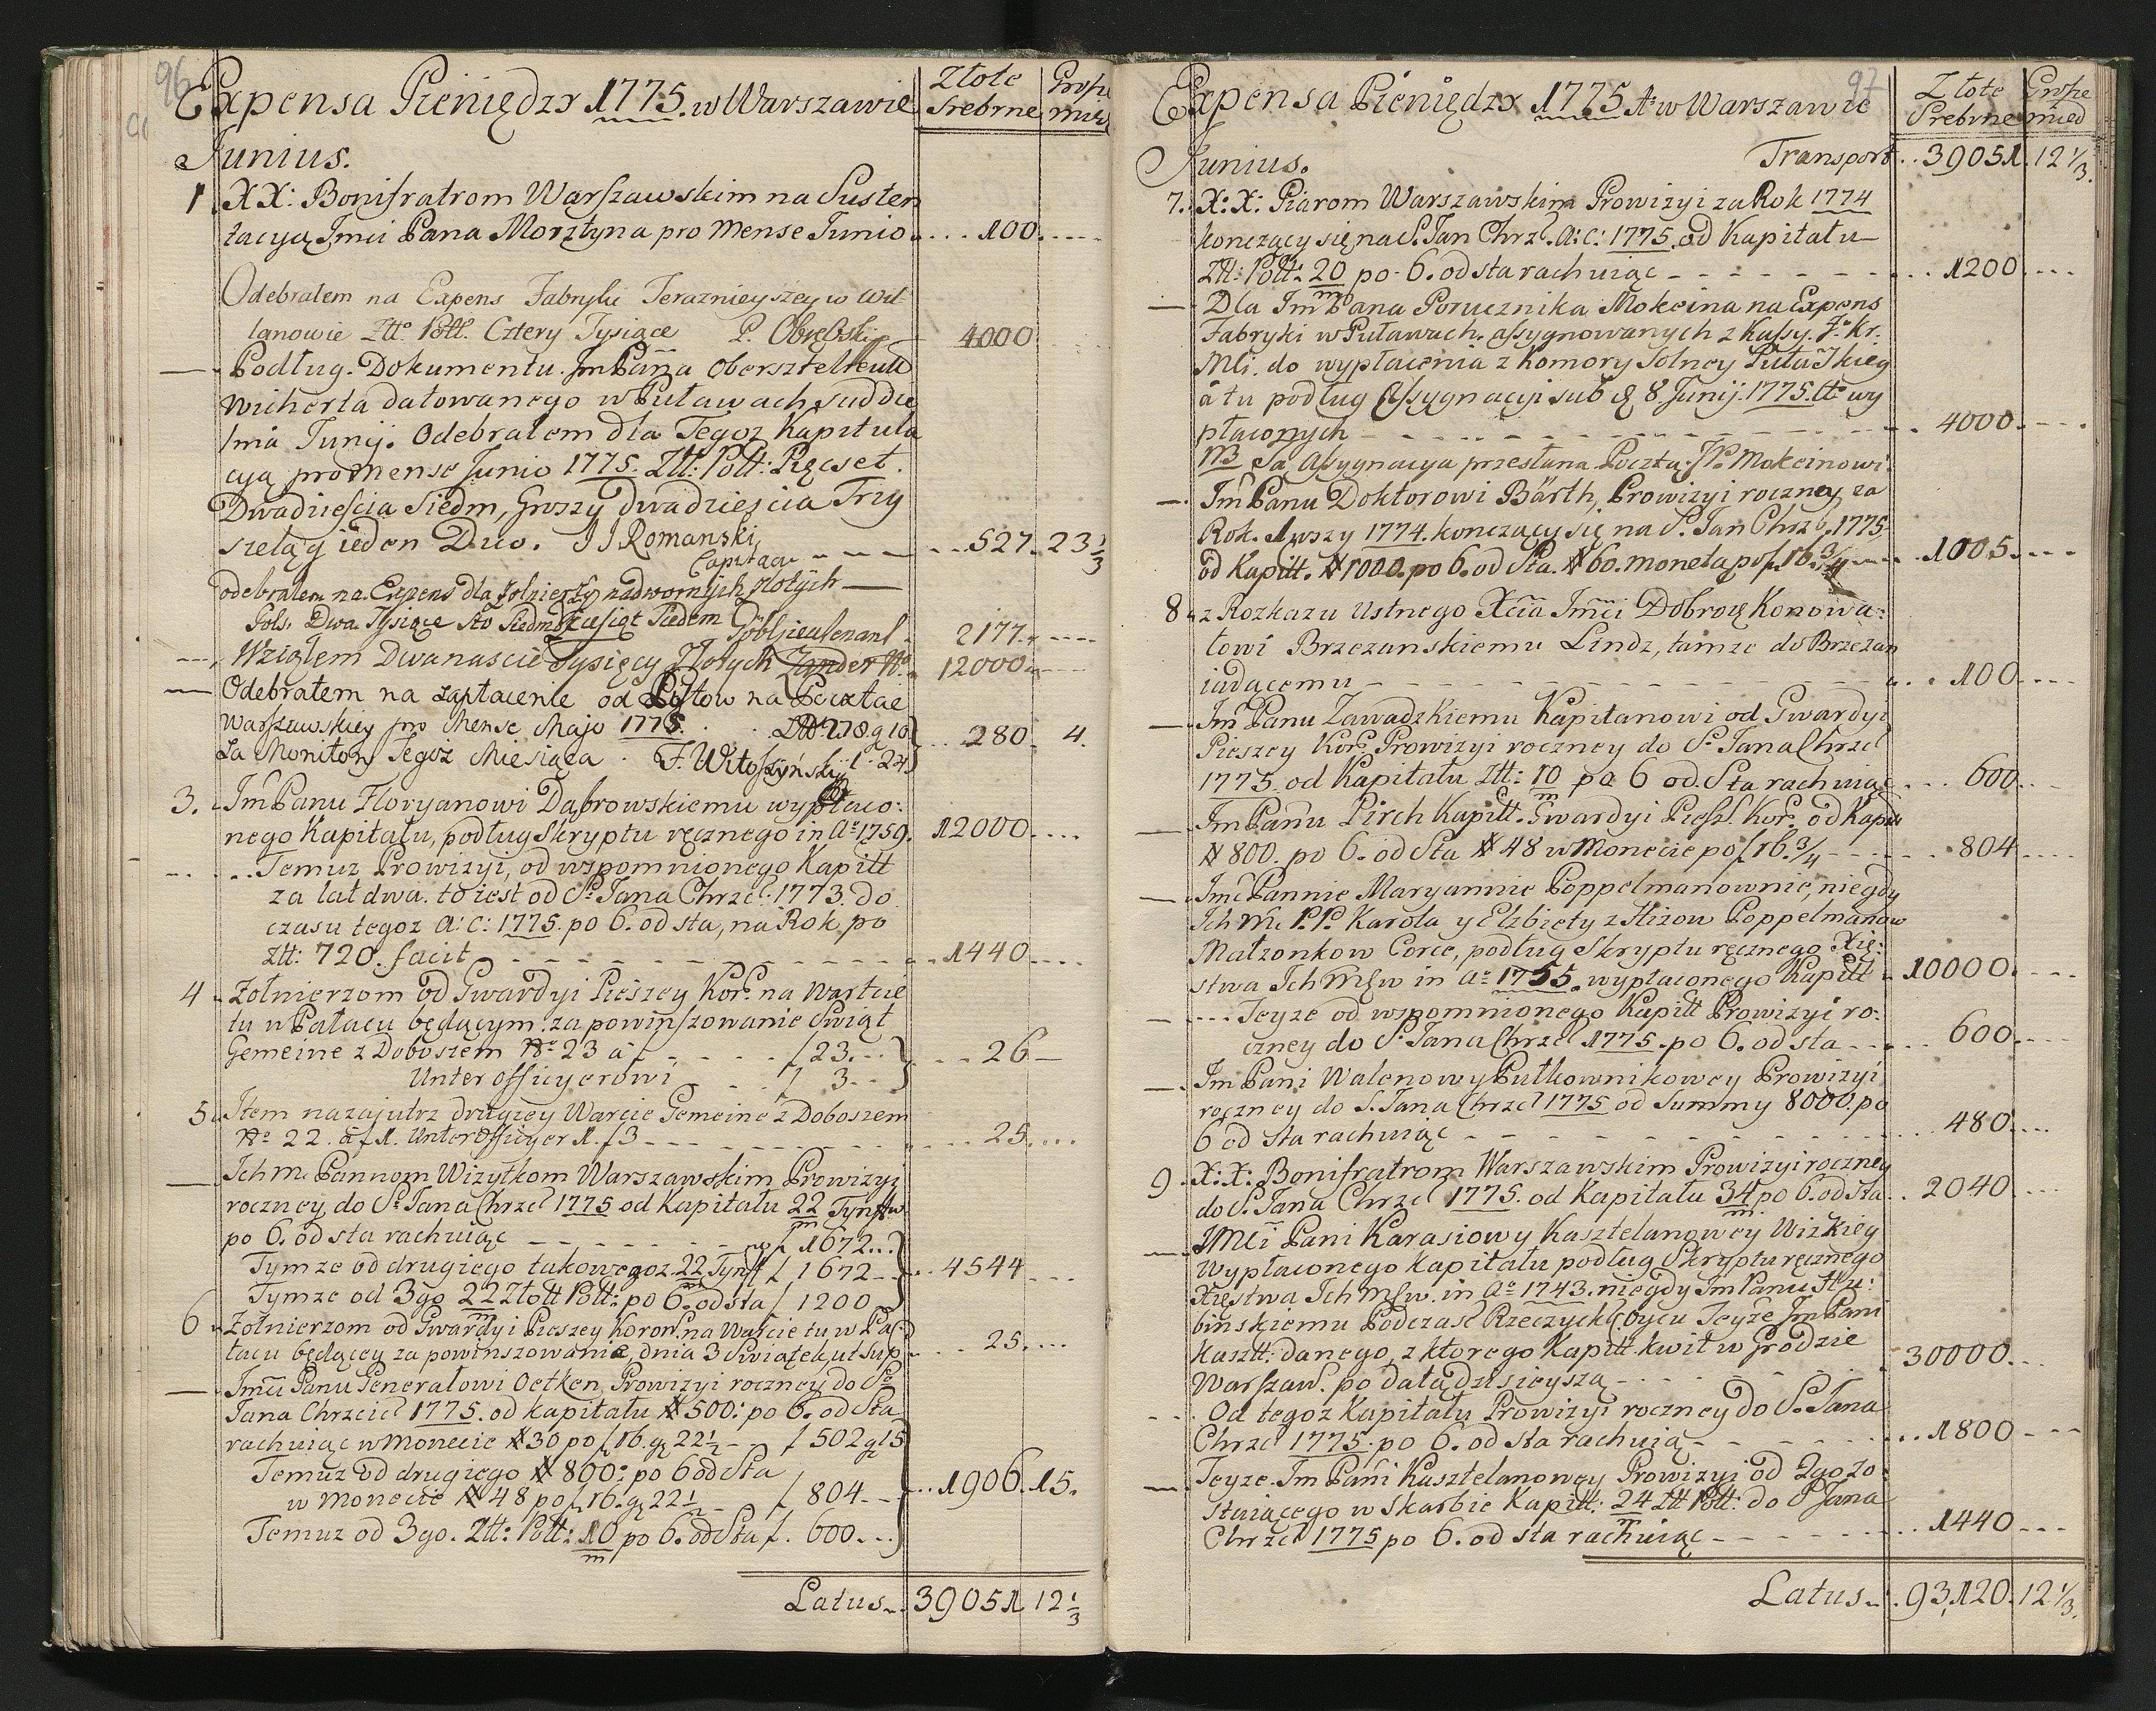 96
Expensa Pieniędzy 1775. w Warszawie
Złote Grosze
Srebrne mie
Junius.
1. XX: Bonifratrom Warszawskim na Susten
tacyą Jmci Pana Morztyna pro Mense Junio. . . . 100. ----
Odebrałem na Expens Fabryki Teraznieyszey w Wil-
lanowie Złto Poll. Cztery Tysiące P. Obrębski 4000
— Podług. Dokumentu. Jm Pana Obersztelteut
Wicherta datowanego w Puławach sud die
1ma Junij. Odebrałem dla Tegoz Kapitula
cyą pro Mense Junio 1775. Złt: Poll: Pięcset.
Dwadzieścia Siedm, Groszy dwadzieścia Trzy
szeląg ieden Duo. J J Romanski
Capitaen - - - . . 527. 23 1/3
odebrałem na Expens dla Żołnierzy nadwornych złotych —
Pols. Dwa Tysiące Sto Siedmdziesiąt Siedem 2177. ----
---, Wziąłem Dwanascie Tysięcy Złotych 12000. --
— Odebrałem na zapłacenie od Listow na Poczta
Warszawskiey pro Mense Majo 1775. . . 278. g 10
Za Monitory Tegoz Miesiąca . F. Witoszyński 1. 24 . . . 280. 4.
3. Jm Panu Floryanowi Dąbrowskiemu wypłaco:
nego Kapitału, podług Skryptu ręcznego in Ao 1759. 12000. . . .
-- . . . Temuz Prowizyi, od wspomnionego Kapitt
za lat dwa. to iest od So Jana Chrzc: 1773. do
czasu tegoz a: c: 1775. po 6. od sta, na Rok, po
złt: 720. facit - - - - - - . . 1440. . . .
4. Żołnierzom od Gwardyi Pieszey Kor: na Warcie
tu w Pałacu będącym. za powinszowanie Swiąt
Gemeine z Doboszem No 23 á - - - - - f 23. --
Unter officyerowi . . f 3. -- . . . 26 —
5. Item nazajutrz drugiey Warcie Gemeine z Doboszem
No 22. á f 1. Unter Officyer 1. f 3 - - - - . . . 25. . . .
— Ich m. Pannom Wizytkom Warszawskim Prowizyi
roczney do So Jana Chrzcl 1775 od Kapitału 22/m Tynffw
po 6. od sta rachuiąc - - - - - - f 1672. . .
Tymze od drugiego takowegoz 22/m Tynff f 1672 - - . . 4544 ---
Tymze od 3go 22 Złott Poll: po 6. od sta f 1200
6. Żołnierzom od Gwardyi Pieszey Koron: na Warcie tu w Pa:
łacu będącey za powinszowanie, dnia 3 Swiątek, ut Sup . . . 25. . . .
— Jmci Panu Generałowi Oetken Prowizyi roczney do So
Jana Chrzciel 1775. od kapitału # 500: po 6. od Sta
rachuiąc w Monecie # 30 po f 16. g 22 1/2 - f 502 g 15
Temuz od drugiego # 800: po 6 od Sta
w Monecie # 48 po f 16. g 22 1/2 - f 804. - - . . 1906. 15.
Temuz od 3go. Złt: Poll: 10/m po 6. od Sta f. 600. . .
Latus . . 39051. 12 1/3
97
Expensa Pieniędzy 1775 Ao w Warszawie
Złote Grosze
Srebrne mied
Junius. Transport . . 39051. 12 1/3.
7. X: X: Piarom Warszawskim Prowizyi za Rok 1774
konczący się na S. Jan Chrzc. a: c: 1775. od Kapitału
Złt: Poll: 20/m po 6. od sta rachuiąc - - - - - - . . . 1200. . . .
— Dla Jm Pana Porucznika Mokcina na Expens
Fabryki w Puławach. assygnowanych z Kassy. J: Kr.
Mci. do wypłacenia z Komory Solney Puławskiey
á tu podług Assygnacyi sub d 8. Junij. 1775. wy
płaconych - - - - - - - - - . . 4000. - - -
NB Ta Assygnacya przesłana Pocztą. JPo Mokcinowi.
— Jm Panu Doktorowi Bärth, Prowizyi roczney za
Rok 1wszy 1774. konczący się na S. Jan Chrzc. 1775.
od Kapitt. # 1000. po 6. od Sta. # 60. moneta po f. 16. 3/4 - - . 1005. - - -
8. z Rozkazu Ustnego Xcia Jmci Dobroę Konowa:
łowi Brzezanskiemu Lindz, tamze do Brzezan
iadącemu - - - - - - - - - . . . 100. - - -
— Jm Panu Zawadzkiemu Kapitanowi od Gwardyi
Pieszey Kor: Prowizyi roczney do So Jana Chrzcl
1775. od Kapitału Złt: 10/m po 6 od. Sta rachuiąc . . . 600. . .
— Jm Panu Pirch Kapitt. Gwardyi Piesz. Kor. od Kapit
# 800. po 6. od Sta # 48 w Monecie po f 16. 3/4 - - - . . 804. . . .
— Jmci Pannie Maryannie Poppelmanownie, niegdy
Ich Mc P.P. Karola y Elzbiety z Hizow Poppelmanow
Małzonkow Corce, podług Skryptu ręcznego Xię:
stwa Ich Mćw in Ao 1755. wypłaconego Kapitt . 10000. - - -
- - . . . Teyze od wspomnionego Kapitt Prowizyi ro:
czney do So Jana Chrzcl 1775. po 6. od sta - - . . . 600. - - -
— Jm Pani Walenowy Pułkownikowey Prowizyi
roczney do S. Jana Chrzcl 1775 od Summy 8000. po
6 od sta rachuiąc - - - - - - - . . . 480. . . .
9. X: X: Bonifratrom Warszawskim Prowizyi roczney
do S. Jana Chrzcl 1775. od Kapitału 34/m po 6. od sta . . 2040. . . .
— JMci Pani Karasiowy Kasztelanowey Wizkiey
Wypłaconego kapitału podług Skryptu ręcznego
Xięstwa Ich Mćw. in Ao 1743. niegdy Jm Panu
binskiemu Podczasz Rzeczyck. Oycu Teyze Jm Pani
Kasztt. danego, z ktorego Kapitt kwit w Grodzie
Warszaw. po datą dzisieyszą - . . . . . . 30000. . .
- - . Od tegoz Kapitału Prowizyi roczney do S. Jana
Chrzcl 1775. po 6. od sta rachuią - - - - - . . . 1800 - - -
— Teyze. Jm Pani Kasztelanowey Prowizyi od 2go zo:
staiącego w Skarbie Kapitt: 24/m Złt Poll: do S Jana
Chrzcl 1775 po 6. od sta rachuiąc - - - - . . 1440 - - -
Latus . . 93,120. 12 1/3.